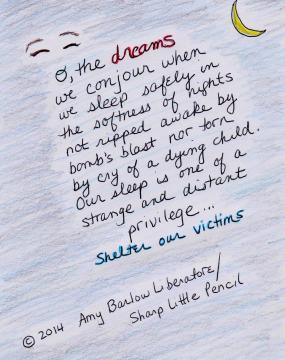 O, the dreams
we conjour when
we sleep safely in
the softness of nights
not ripped awake by
bomb's blast nor torn
by cry of a dying child.
Our sleep is one of a
strange and distant
privilege...
Shelter our victims
© 2014 Amy Barlow Liberatore/
Sharp Little Pencil